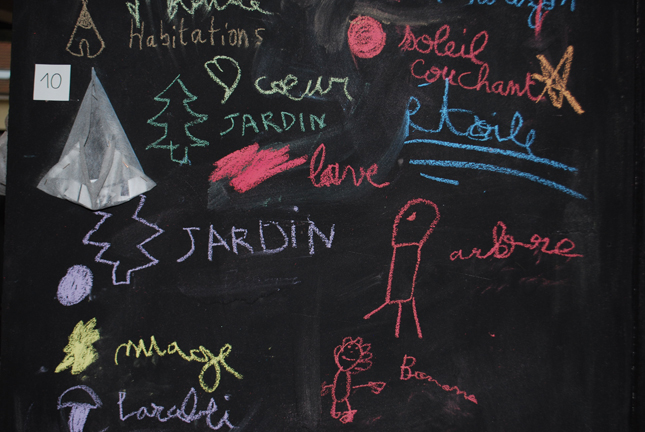 Habitations
soleil
couchant
10
coeur
JARDIN
Etoile
lave
JARDiN
arbore
nuage
Banane